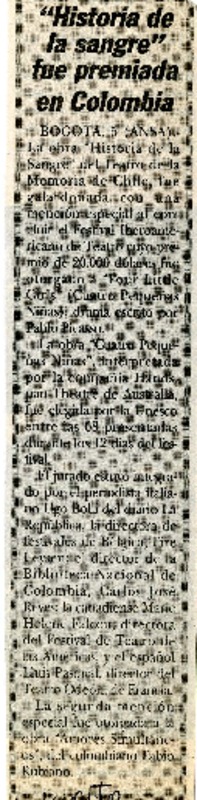 "Historia de
la sangre"
fue premiada
en Colombia
BOGOTA, 5 (ANSA).-
La obra "Historia de la
Sangre" del Teatro de la
Memoria de Chile, fue
galardonada con una
mención especial al con-
cluir el Festival Iberoame-
ricano de Teatro cuyo pre-
mio de 20.000 dólares fue
otorgado a "Four Little
Girls" (Cuatro Pequeñas
Niñas), drama escrito por
Pablo Picasso.
La obra "Cuatro Peque-
ñas Niñas", interpretada
por la compañía Hands-
pan Theatre de Australia,
fue elegida por la Unesco
entre las 68 presentadas
durante los 12 días del fes-
tival.
El jurado estuvo integra-
do por el periodista italia-
no Ugo del diario La
República, la directora de
festivales de Bélgica,
director de la
Biblioteca Nacional de
Colombia, Carlos José
Reyes, la canadiense Marie
Helene Falcon, directora
del Festival de Teatro de
las Américas, y el español
Lluis Pasqual, director del
Teatro Odeón, de Francia.
La segunda mención
especial fue otorgada a la
obra "Amores Simultáne-
os", del colombiano Fabio
Rubiano.